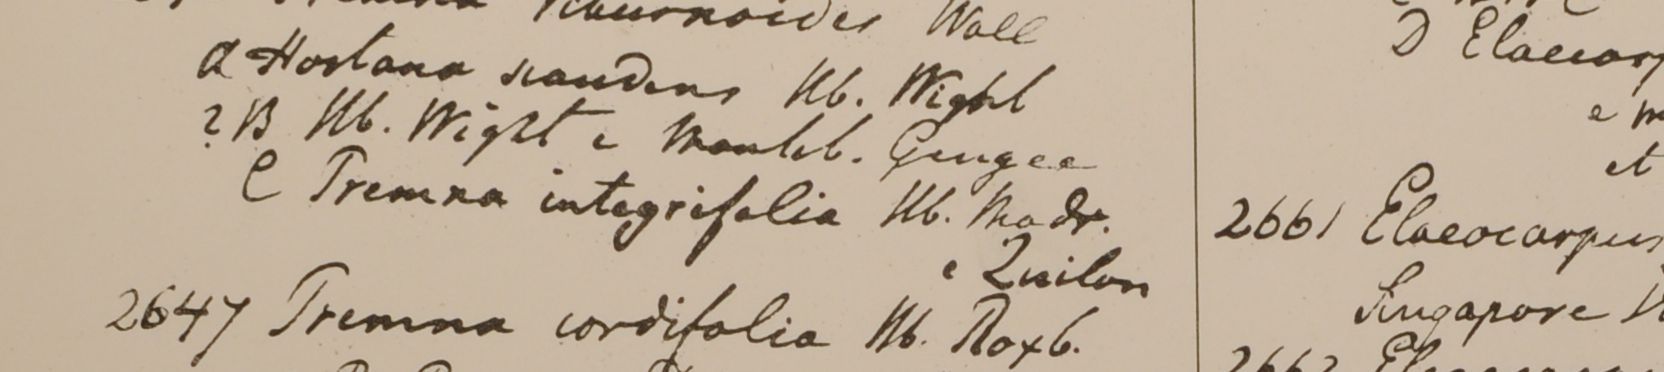 Premna viburnoides Wall
a Hostana scandens Hb. Wight
? B Hb. Wight e Gingee
C Premna integrifolia Hb. Madr.
e Quilon
2647 Premna cordifolia Hb. Roxb.
D Elaeocarp
e m
et
2661 Elaeocarpus
Singapore
2662